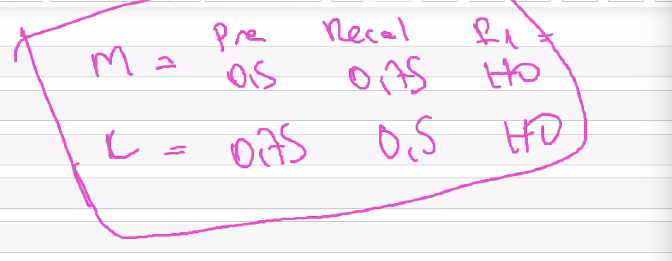 Pre Recal F1
M = 0,5 0,75 HO
L = 0,75 0,5 HO